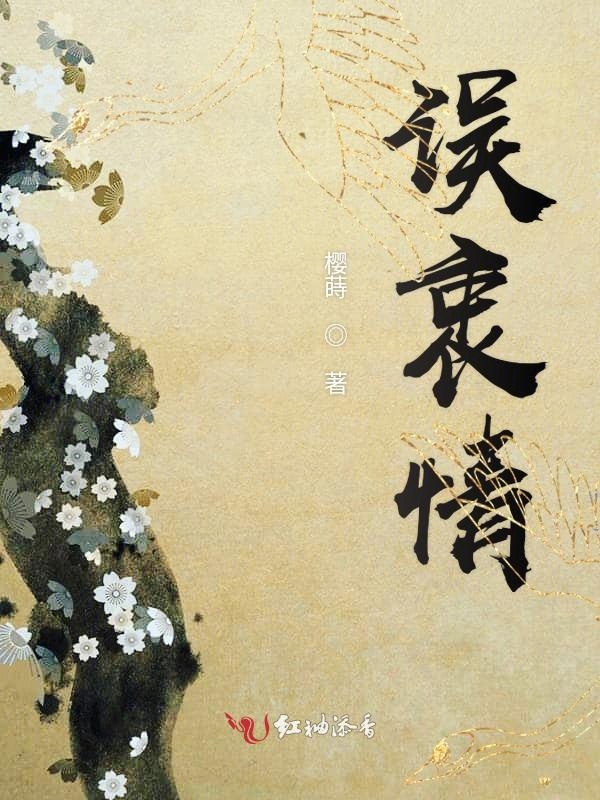 误衷情
樱蒔 ◎ 著
红袖添香